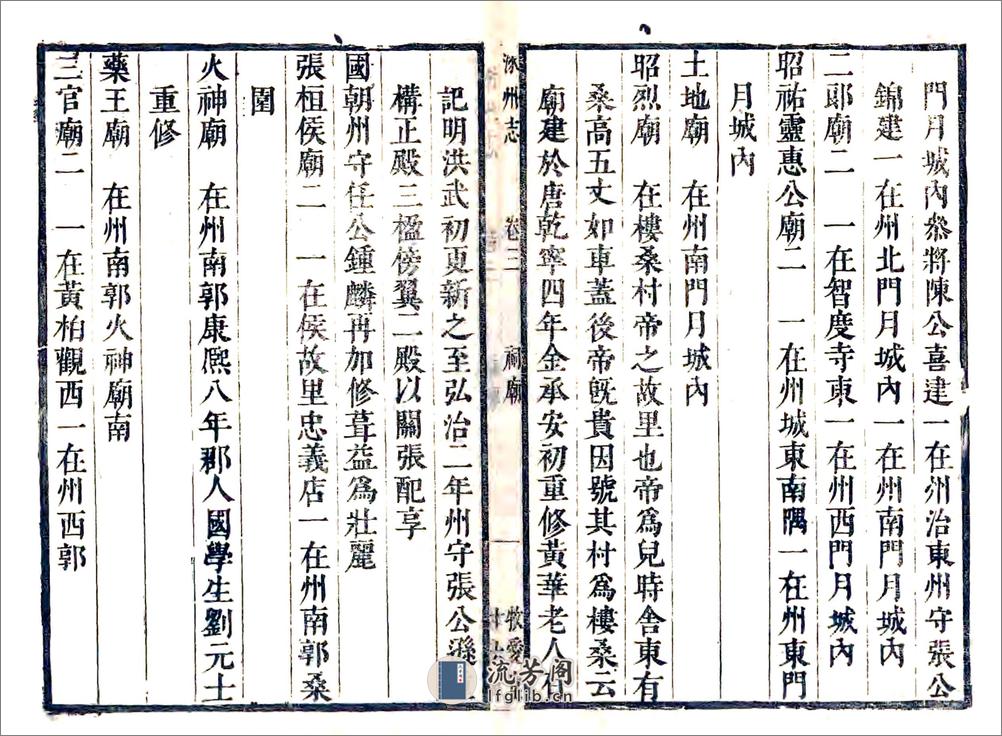 門月城內叅將陳公喜建一在州治東州守張公
錦建一在州北門月城內一在州南門月城內
二郎廟二　一在智度寺東一在州西門月城內
昭祐靈惠公廟二　一在州城東南隅一在州東門
月城內
土地廟　在州南門月城內
昭烈廟　在樓桑村帝之故里也帝爲兒時舍東有
桑高五丈如車蓋後帝旣貴因號其村爲樓桑云
廟建於唐乾寧四年金承安初重修黃華老人有
涿州志　卷二　祠廟
記明洪武初更新之至弘治二年州守張公遜
構正殿三楹傍翼二殿以關張配享
國朝州守任公鍾麟再加修葺益爲壯麗
張桓侯廟二　一在侯故里忠義店一在州南郭桑
園
火神廟　在州南郭康熙八年郡人國學生劉元士
重修
藥王廟　在州南郭火神廟南
三官廟二　一在黃柏觀西一在州西郭
流芳阁
lfglib.cn